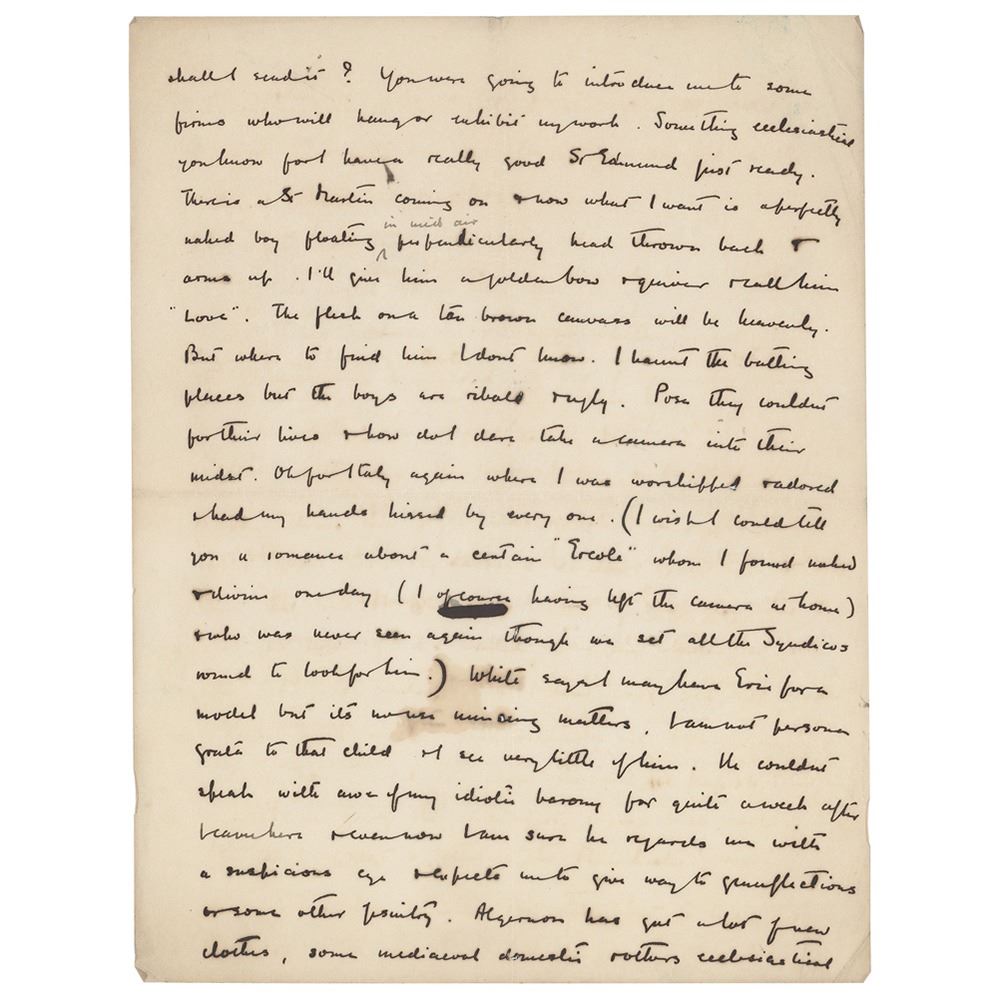 shall I send it? You were going to introduce me to some
firms who will hang or exhibit my work. Something ecclesiastical
you know for I have a really good St Edmund just ready.
There is a St Martin coming on & now what I want is a perfectly
in mid air
naked boy floating perpendicularly head thrown back &
arms up. I'll give him a golden bow & quiver & call him
"Love". The flesh on a tan brown canvass will be heavenly.
But where to find him I dont know. I haunt the bathing
places but the boys are ribald & ugly. Pose they couldnt
for their lives & how do I dare take a camera into their
midst. Oh for Italy again where I was worshipped & adored
& had my hands kissed by every one. (I wish I could tell
you a romance about a certain "Ercole" whom I found naked
& divine one day (I of course having left the camera at home)
& who was never seen again though we set all the Syndicos
round to look for him.) White says I may have Eric for a
model but its no use mincing matters, I am not persona
grata to that child & I see very little of him. He couldnt
speak with awe of my idiotic barony for quite a week after
I came here & even now I am sure he regards me with
a suspicious eye & expects me to give way to genuflections
or some other . Algernon has got a lot of new
clothes, some mediaeval domestic & others ecclesiastical